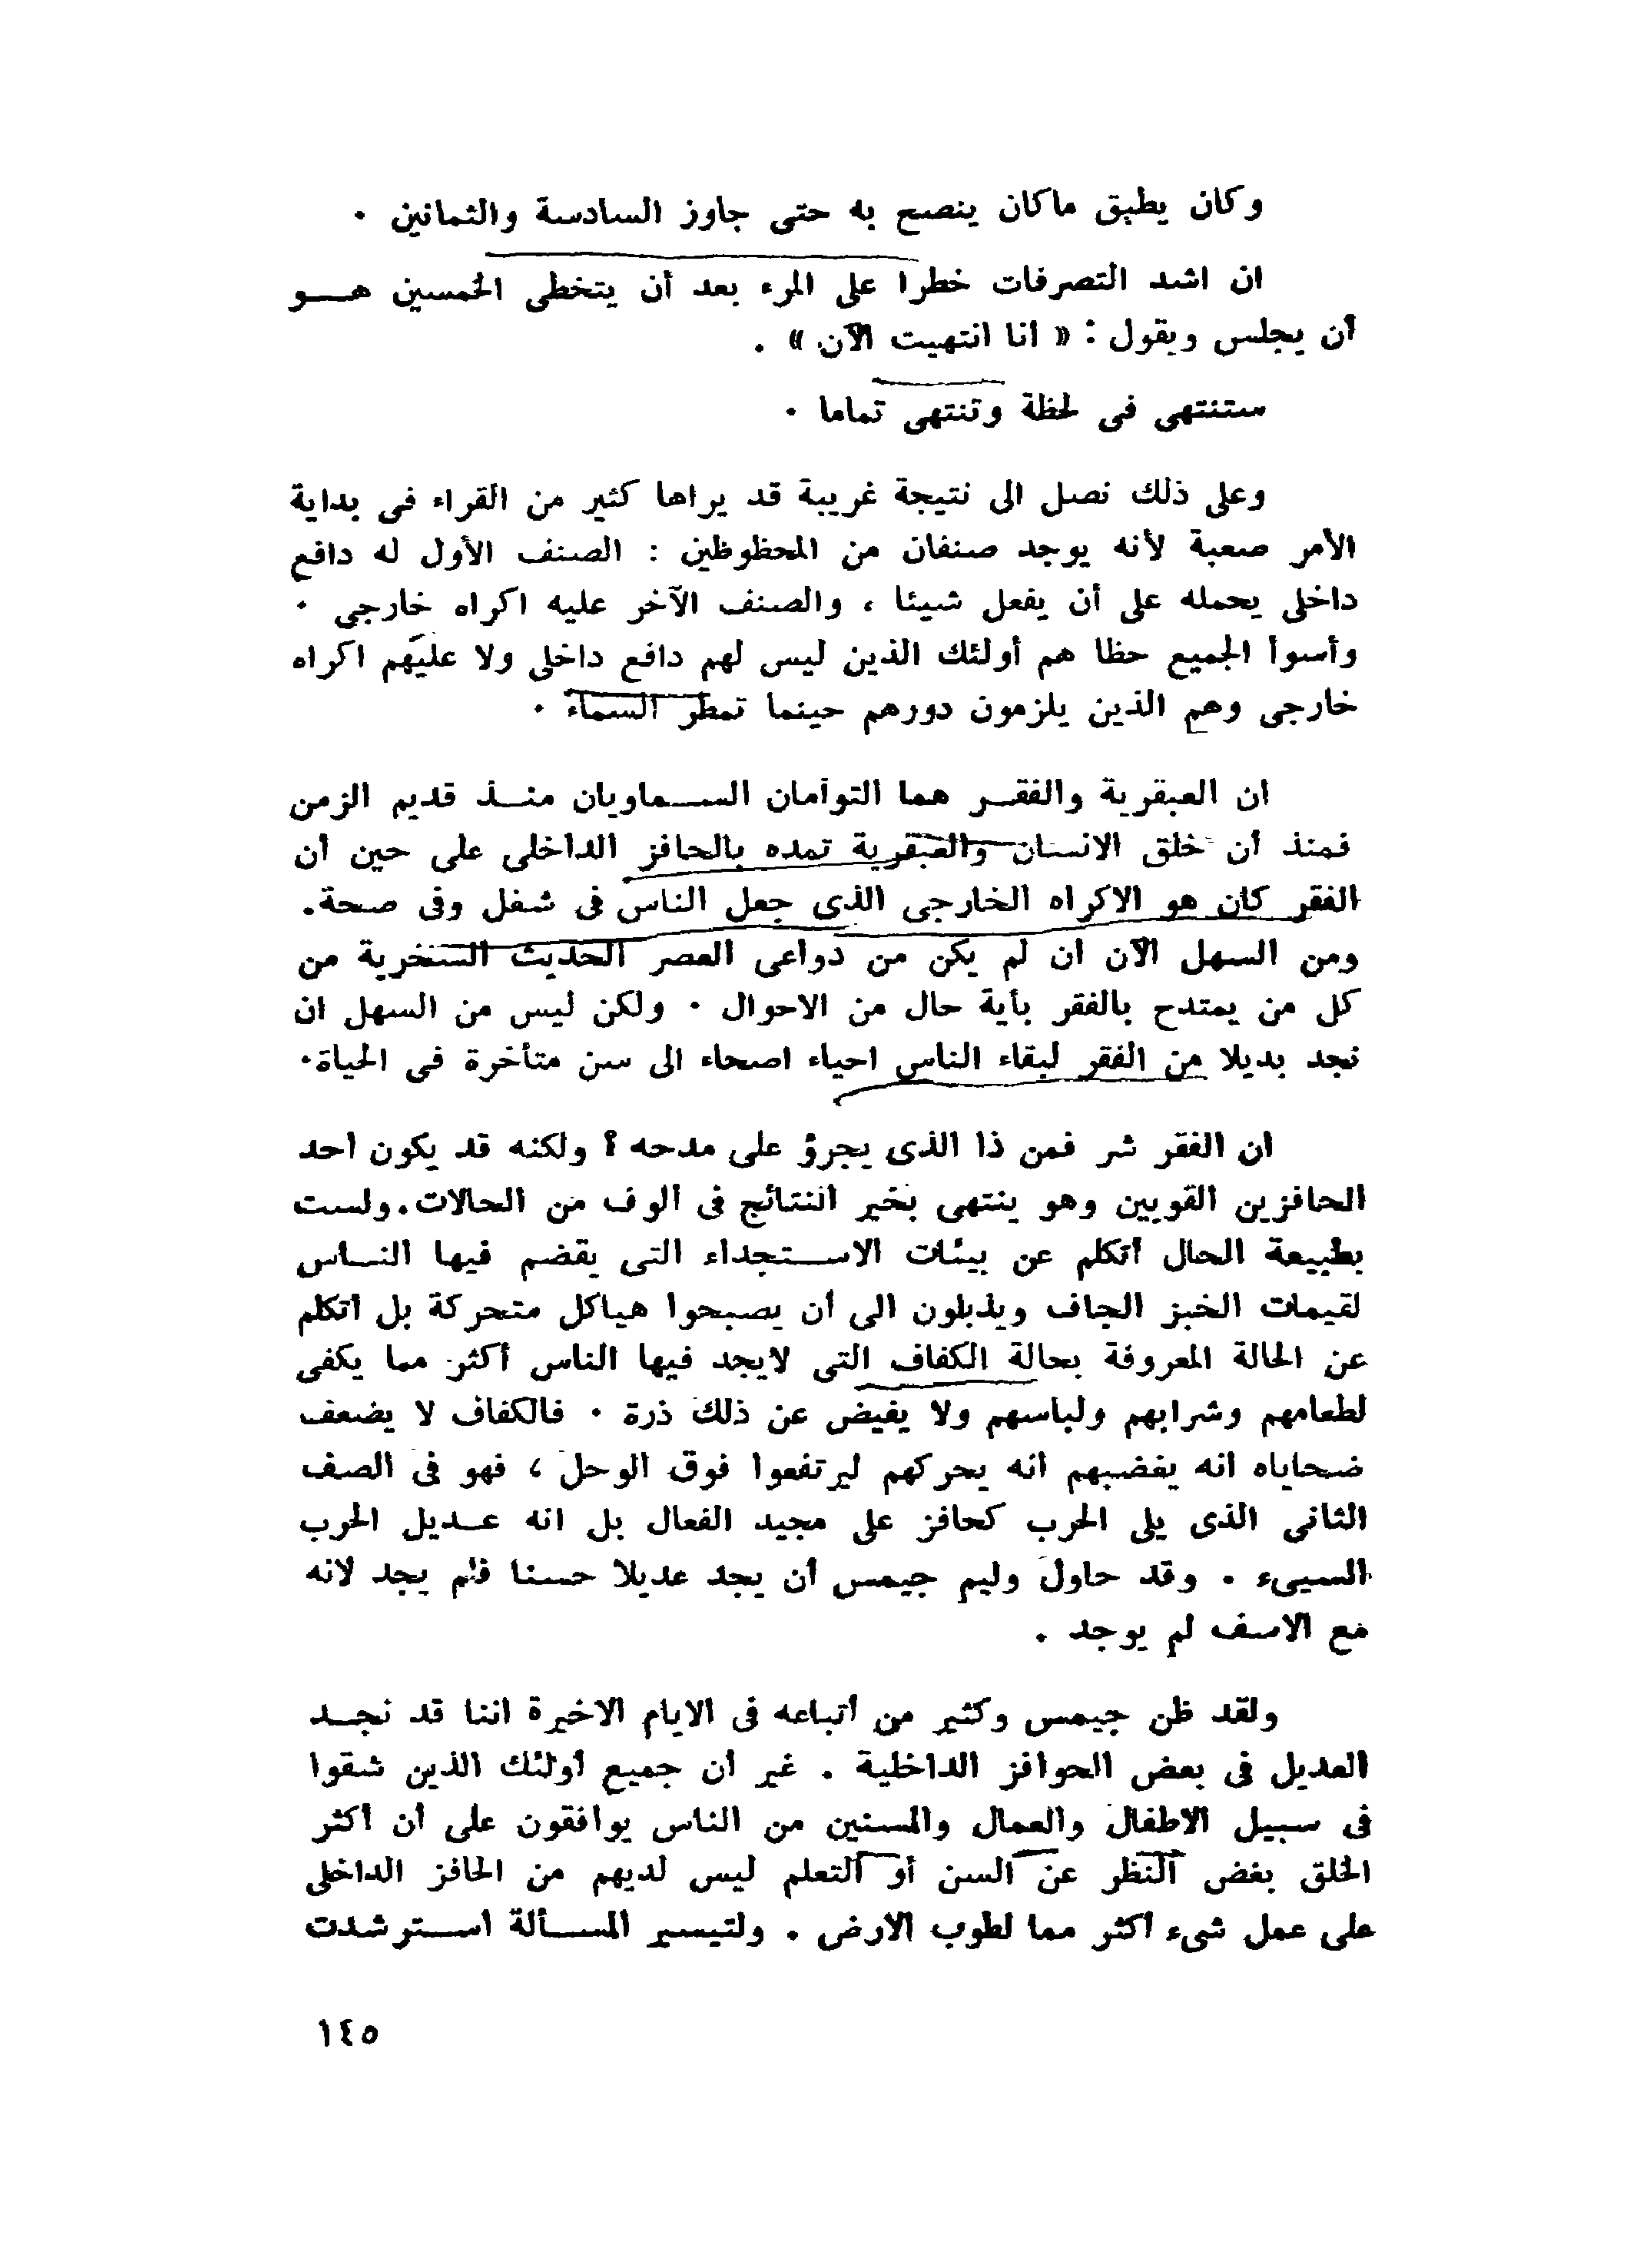 وكان يطبق ماكان ينصح به حتى جاوز السادسة والثمانين ٠
ان اشد التصرفات خطرا على المرء بعد أن يتخطى الخمسين هـــو
أن يجلس ويقول : « انا انتهيت الآن » .
ستنتهى فى لحظة وتنتهى تماما ٠
وعلى ذلك نصل الى نتيجة غريبة قد يراها كثير من القراء فى بداية
الأمر صعبة لأنه يوجد صنفان من المحظوظين : الصنف الأول له دافع
داخلى يحمله على أن يفعل شيئا ، والصنف الآخر عليه اكراه خارجى ٠
وأسوأ الجميع حظا هم أولئك الذين ليس لهم دافع داخلى ولا عليهم اكراه
خارجى وهم الذين يلزمون دورهم حينما تمطر السماء ٠
ان العبقرية والفقـــر هما التوأمان الســـماويان منـــذ قديم الزمن
فمنذ أن خلق الانسان والعبقرية تمده بالحافز الداخلى على حين أن
الفقر كان هو الاكراه الخارجى الذى جعل الناس فى شغل وفى صحة.
ومن السهل الآن ان لم يكن من دواعى العصر الحديث السخرية من
كل من يمتدح بالفقر بأية حال من الاحوال ٠ ولكن ليس من السهل ان
نجد بديلا من الفقر لبقاء الناس احياء اصحاء الى سن متأخرة فى الحياة٠
ان الفقر شر فمن ذا الذى يجرؤ على مدحه ؟ ولكنه قد يكون احد
الحافزين القويين وهو ينتهى بخير النتائج فى ألوف من الحالات.ولست
بطبيعة الحال أتكلم عن بيئات الاســـتجداء التى يقضم فيها النـــاس
لقيمات الخبز الجاف ويذبلون الى أن يصبحوا هياكل متحركة بل أتكلم
عن الحالة المعروفة بحالة الكفاف التى لايجد فيها الناس أكثر مما يكفى
لطعامهم وشرابهم ولباسهم ولا يفيض عن ذلك ذرة ٠ فالكفاف لا يضعف
ضحاياه انه يغضبهم انه يحركهم ليرتفعوا فوق الوحل ، فهو فى الصف
الثانى الذى يلى الحرب كحافز على مجيد الفعال بل انه عـــديل الحرب
السيىء . وقد حاول وليم جيمس أن يجد عديلا حسنا فلم يجد لانه
مع الاسف لم يوجد .
ولقد ظن جيمس وكثير من أتباعه فى الايام الاخيرة اننا قد نجـــد
العديل فى بعض الحوافز الداخلية . غير أن جميع أولئك الذين شقوا
فى سبيل الاطفال والعمال والمسنين من الناس يوافقون على أن أكثر
الخلق بغض النظر عن السن أو التعلم ليس لديهم من الحافز الداخلى
على عمل شىء اكثر مما لطوب الارض . ولتيسير المســـألة اســـترشدت
١٤٥